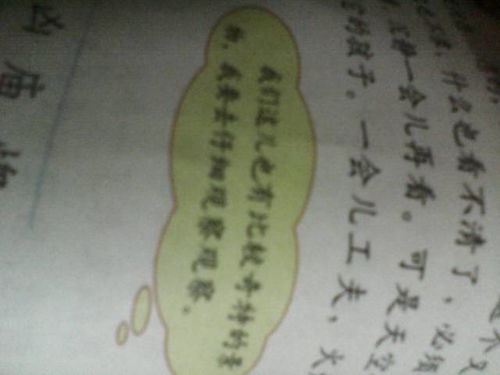 什么也看不清了，必须
静一会儿再看。可是天空
它的孩子。一会儿工夫，火
我们这儿也有比较奇特的景
物，我要去仔细观察观察。
凶 庙